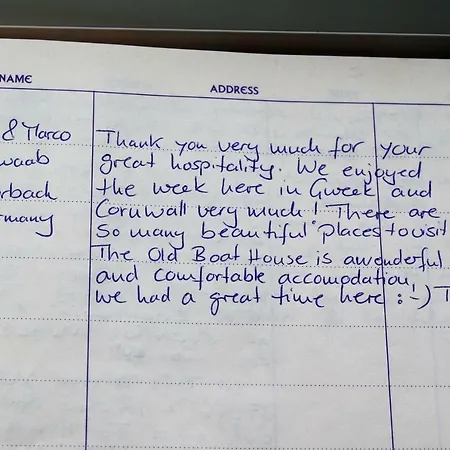 NAME
ADDRESS
& Marco
waab
rbach
rmany
Thank you very much for your
great hospitality. We enjoyed
the week here in Gweek and
Cornwall very much! There are
so many beautiful places to visit
The Old Boat House is a wonderful
and comfortable accomodation,
we had a great time here :-) T